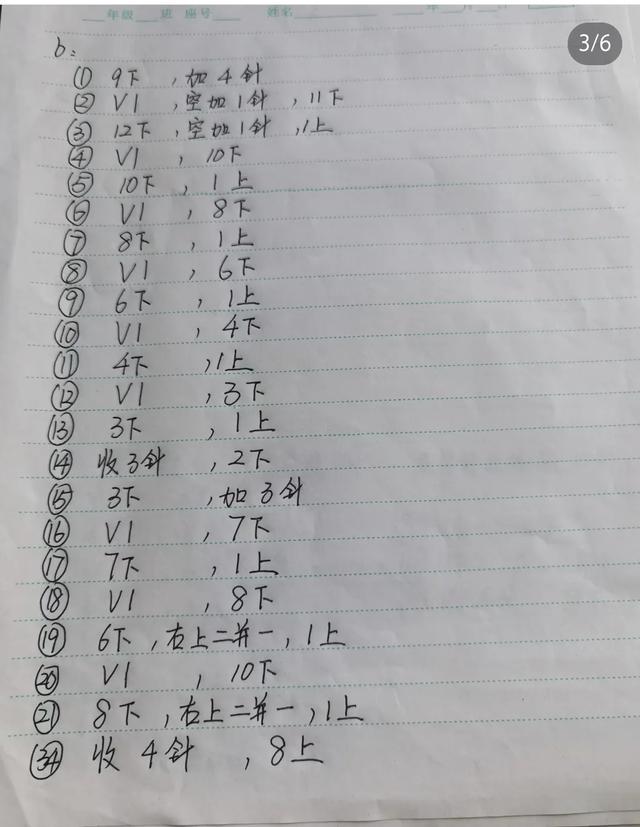 年级 班 座号 姓名 年 月
3/6
b:
① 9下 ,加4针
② V1 ,空加1针 ,11下
③ 12下 ,空加1针 ,1上
④ V1 ,10下
⑤ 10下 ,1上
⑥ V1 ,8下
⑦ 8下 ,1上
⑧ V1 ,6下
⑨ 6下 ,1上
⑩ V1 ,4下
⑪ 4下 ,1上
⑫ V1 ,3下
⑬ 3下 ,1上
⑭ 收3针 ,2下
⑮ 3下 ,加3针
⑯ V1 ,7下
⑰ 7下 ,1上
⑱ V1 ,8下
⑲ 6下 ,右上二并一 ,1上
⑳ V1 ,10下
㉑ 8下 ,右上二并一 ,1上
㉞ 收4针 ,8上